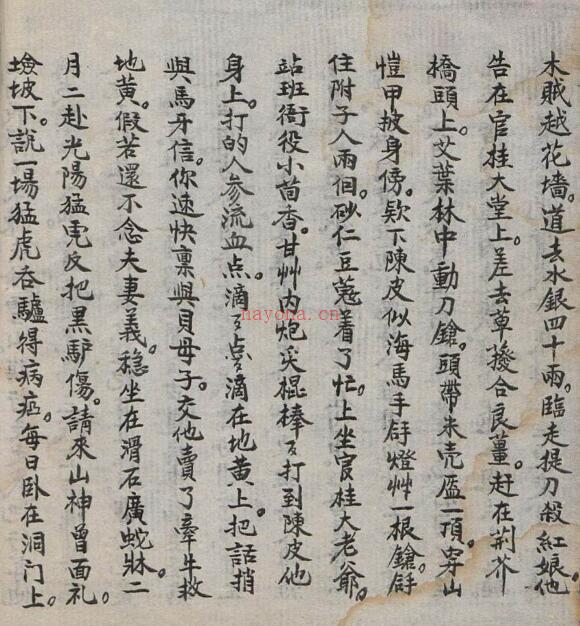 木賊越花墻。道去水銀四十兩。臨走提刀殺紅娘。他
告在官桂大堂上。差去草撥合良薑。赶在荆芥
橋頭上。艾葉林中動刀鎗。頭帶朱壳盔一頂。穿山
愷甲披身傍。欵下陳皮似海馬手舒燈艸一根鎗。舒
住附子人兩個。砂仁豆蔻着了忙。上坐官桂大老爺。
站班衙役小茴香。甘艸內炮尖棍棒〻打到陳皮他
身上。打的人参流血点。滴〻点滴在地黃上。把話捎
與馬牙信。你速快禀與貝母子。交他賣了牽牛救
地黃。假若還不念夫妻義。穏坐在滑石廣蛇牀。二
月二赴光陽猛虎反把黑馿傷。請來山神曾面礼。
墕坡下。說一塲猛虎吞驢得病症。每日卧在洞门上。
nayona.cn